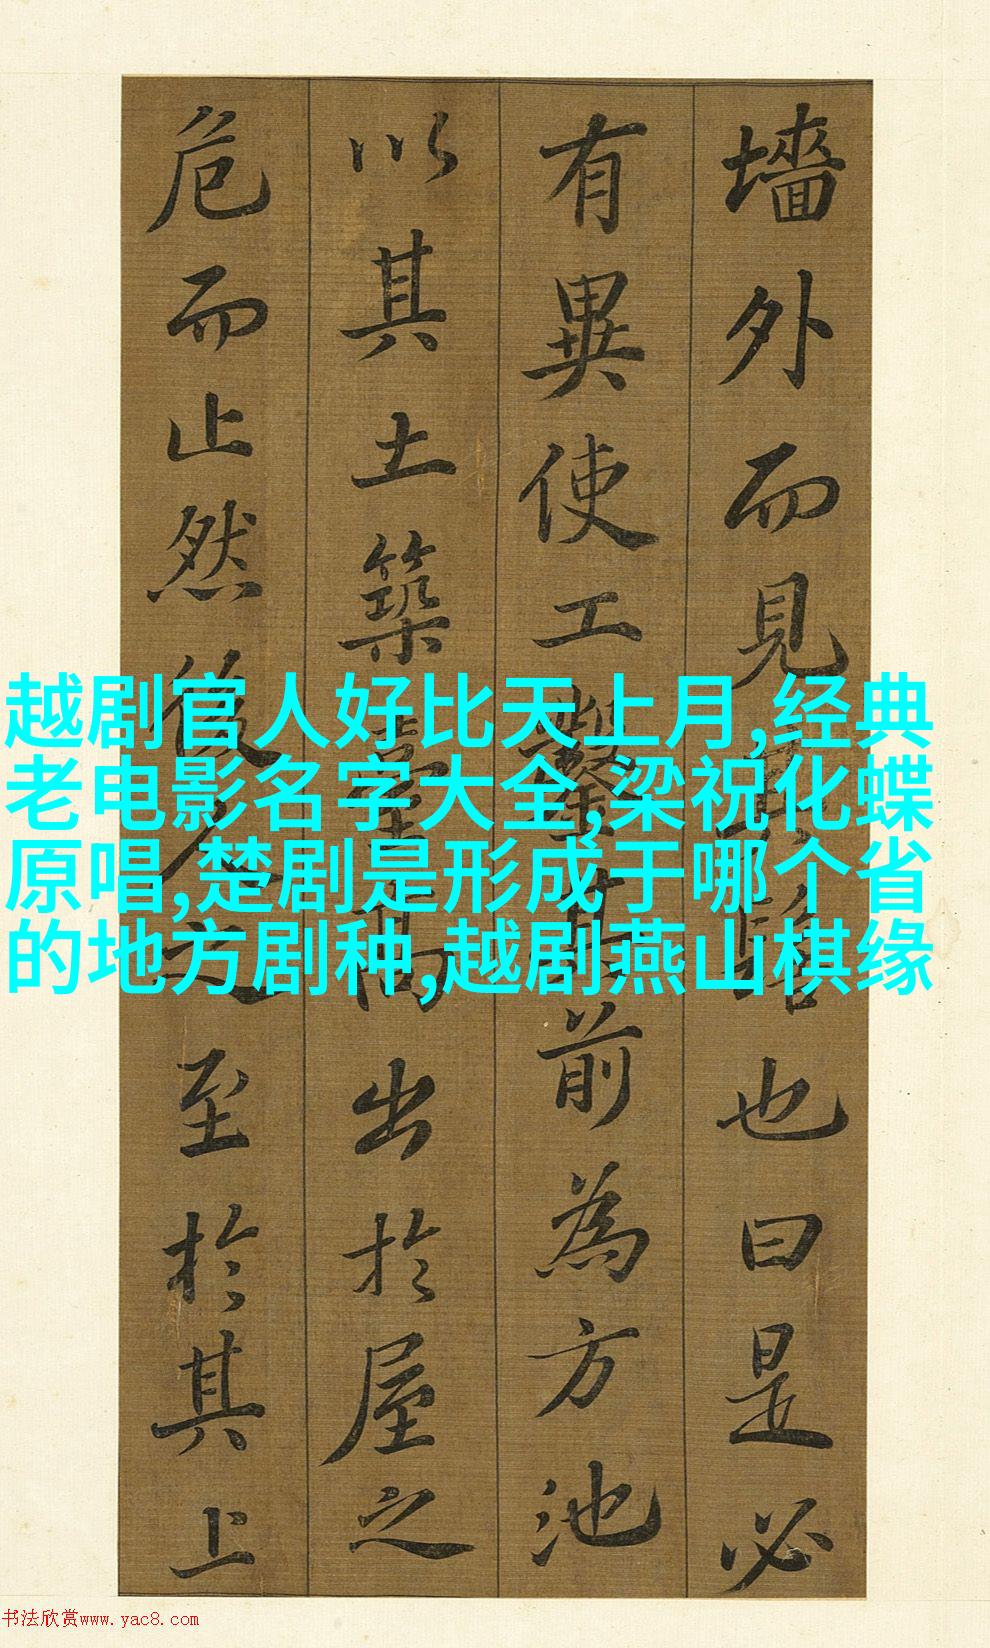 墻外而見其髻也曰是必
有異使工鑿其前為方池
以其土築臺高出於屋之
危而止然後人之至於其上
越剧官人好比天上月,经典
老电影名字大全,梁祝化蝶
原唱,楚剧是形成于哪个省
的地方剧种,越剧燕山棋缘
书法欣赏www.yac8.com